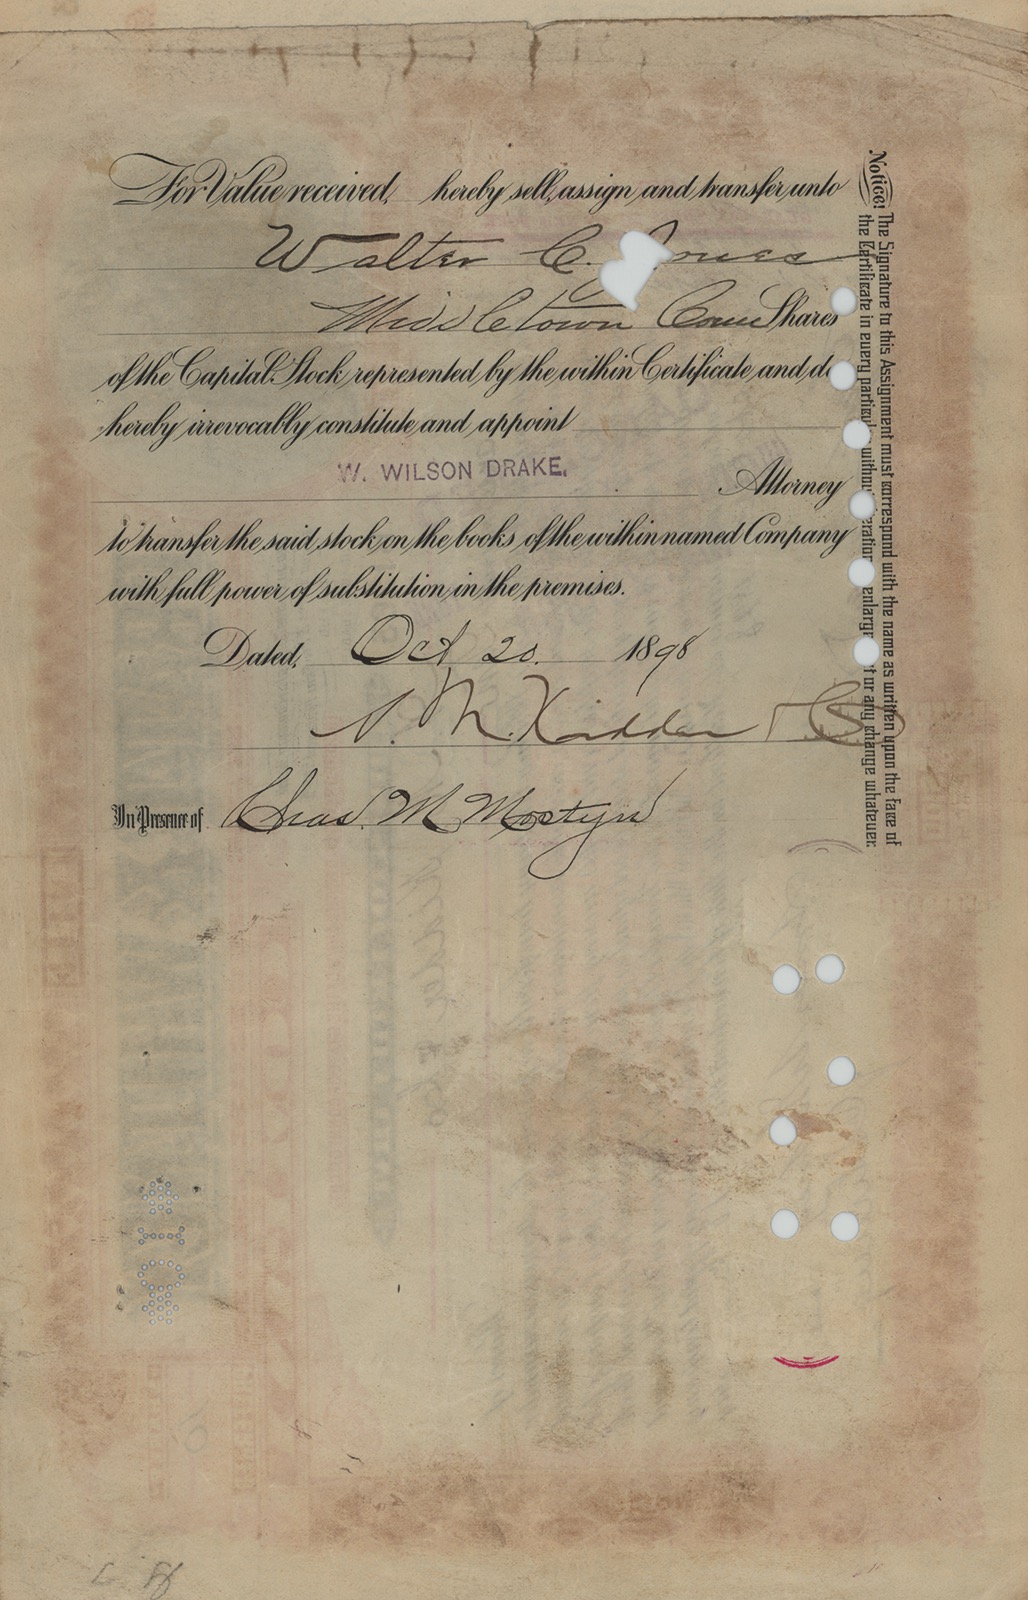 For Value received, hereby sell, assign and transfer unto
Walter C. Jones
Middletown Conn Shares
of the Capital Stock represented by the within Certificate and do
hereby irrevocably constitute and appoint
W. WILSON DRAKE.
Attorney
to transfer the said stock on the books of the within named Company
with full power of substitution in the premises.
Dated, Oct 20. 1898
M. Kidder
In Presence of Chas. M Mostyn
Notice! The Signature to this Assignment must correspond with the name as written upon the face of
the Certificate in every particular without alteration enlargement or any change whatever.
*10*